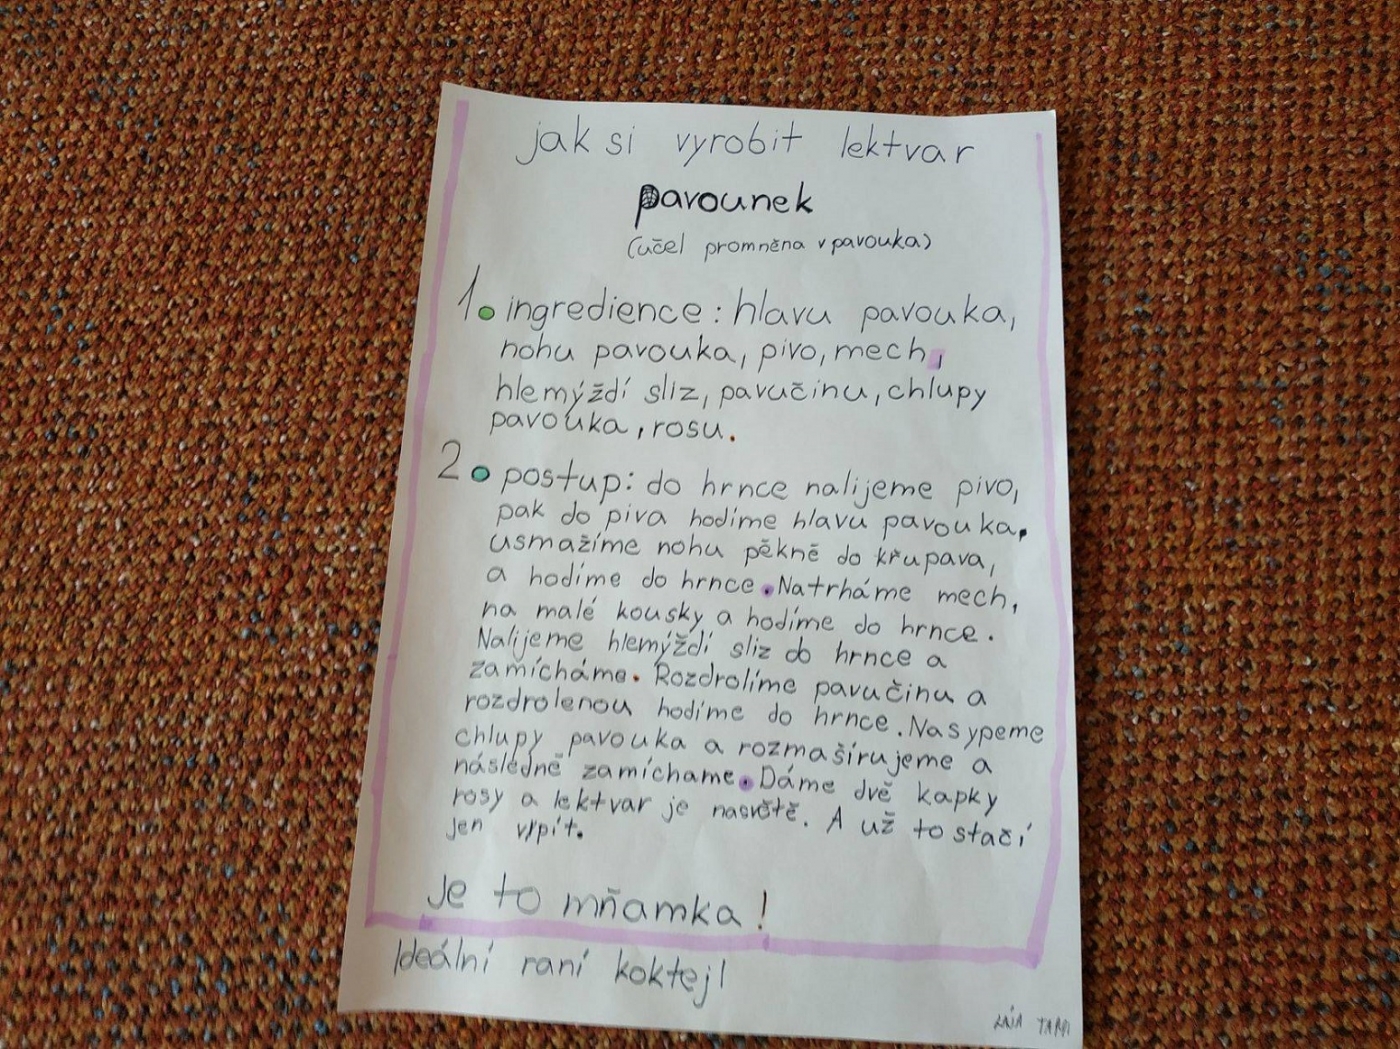 jak si vyrobit lektvar
pavounek
(učel promněna v pavouka)
1. ingredience: hlavu pavouka,
nohu pavouka, pivo, mech,
hlemýždí sliz, pavučinu, chlupy
pavouka, rosu.
2. postup: do hrnce nalijeme pivo,
pak do piva hodíme hlavu pavouka.
usmažíme nohu pěkně do křupava,
a hodíme do hrnce. Natrháme mech,
na malé kousky a hodíme do hrnce.
Nalijeme hlemýždí sliz do hrnce a
zamícháme. Rozdrolíme pavučinu a
rozdrolenou hodíme do hrnce. Nasypeme
chlupy pavouka a rozmašírujeme a
následně zamíchame. Dáme dvě kapky
rosy a lektvar je nasvětě. A už to stačí
jen vypít.
Je to mňamka!
Ideální raní koktejl